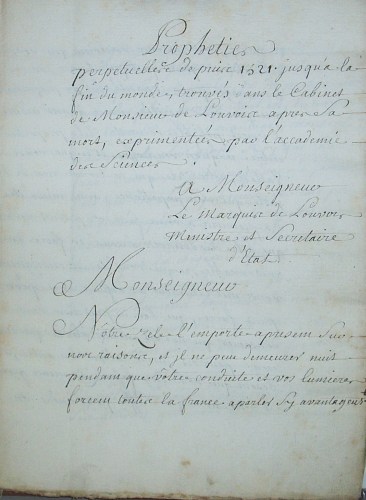 Propheties
perpetuelles depuis 1521. jusqu'a la
fin du monde, trouvés dans le Cabinet
de Monsieur de Louvois apres Sa
mort, exprimentées par l'accademie
des Sciences.
A Monseigneur
Le Marquis de Louvois
Ministre et Secretaire
d'Etat.
Monseigneur
Nôtre zele l'emporte apresent Sur
nos raisons, et je ne peu demeurer muet
pendant que vôtre conduite et vos lumieres
forcent toutes la france a parler Sy avantageus